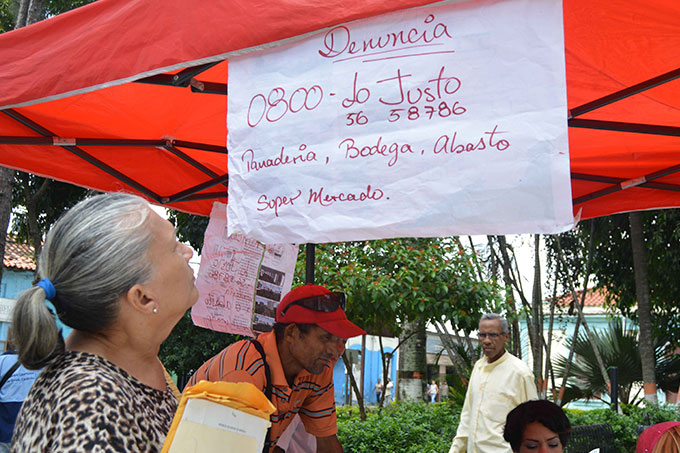 Denuncia
0800-Lo Justo
56 58786
Panaderia, Bodega, Abasto
Super Mercado.